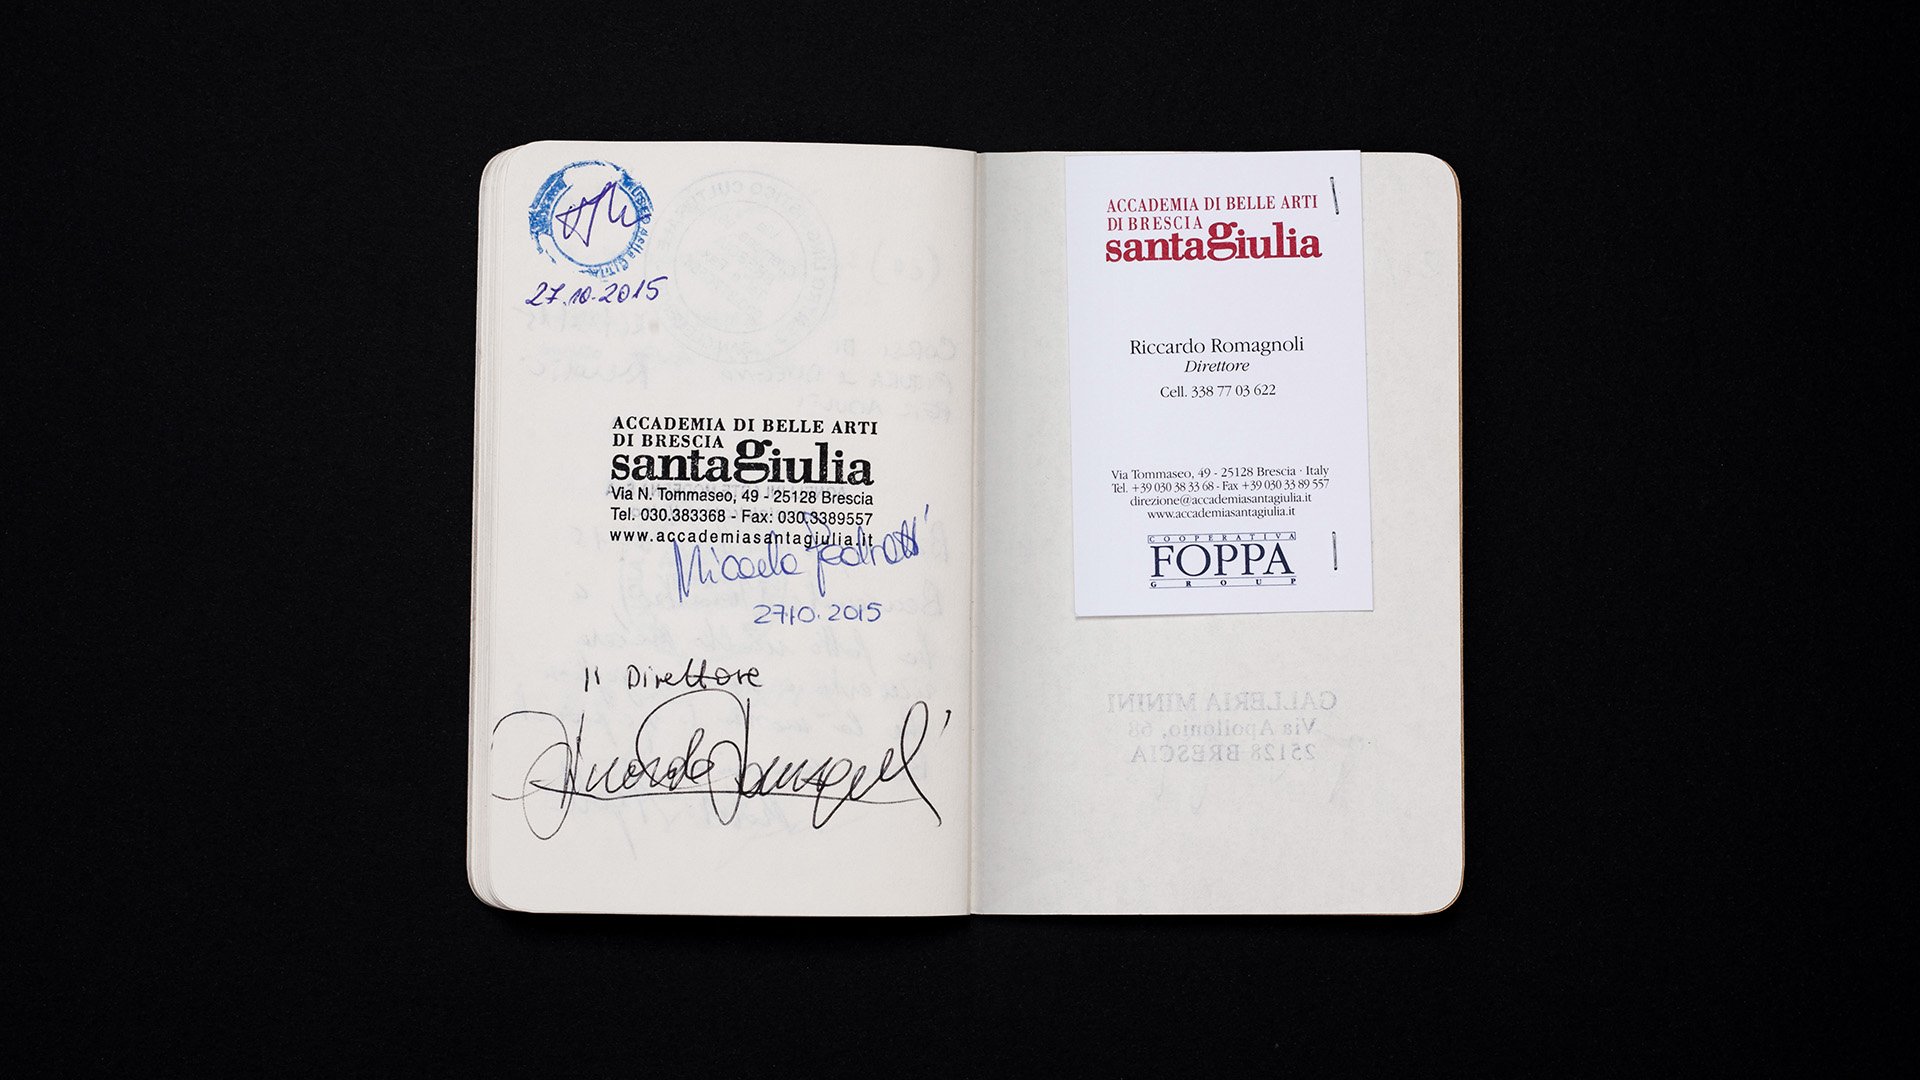 MUSEO della CITTÀ
27.10.2015
ACCADEMIA DI BELLE ARTI
DI BRESCIA
santagiulia
Via N. Tommaseo, 49 - 25128 Brescia
Tel. 030.383368 - Fax: 030.3389557
www.accademiasantagiulia.it
Micaela
27.10.2015
Il Direttore
Riccardo Romagnoli
ACCADEMIA DI BELLE ARTI
DI BRESCIA
santagiulia
Riccardo Romagnoli
Direttore
Cell. 338 77 03 622
Via Tommaseo, 49 - 25128 Brescia · Italy
Tel. +39 030 38 33 68 - Fax +39 030 33 89 557
direzione@accademiasantagiulia.it
www.accademiasantagiulia.it
COOPERATIVA
FOPPA
GROUP
GALLERIA MININI
Via Apollonio, 68
25128 BRESCIA